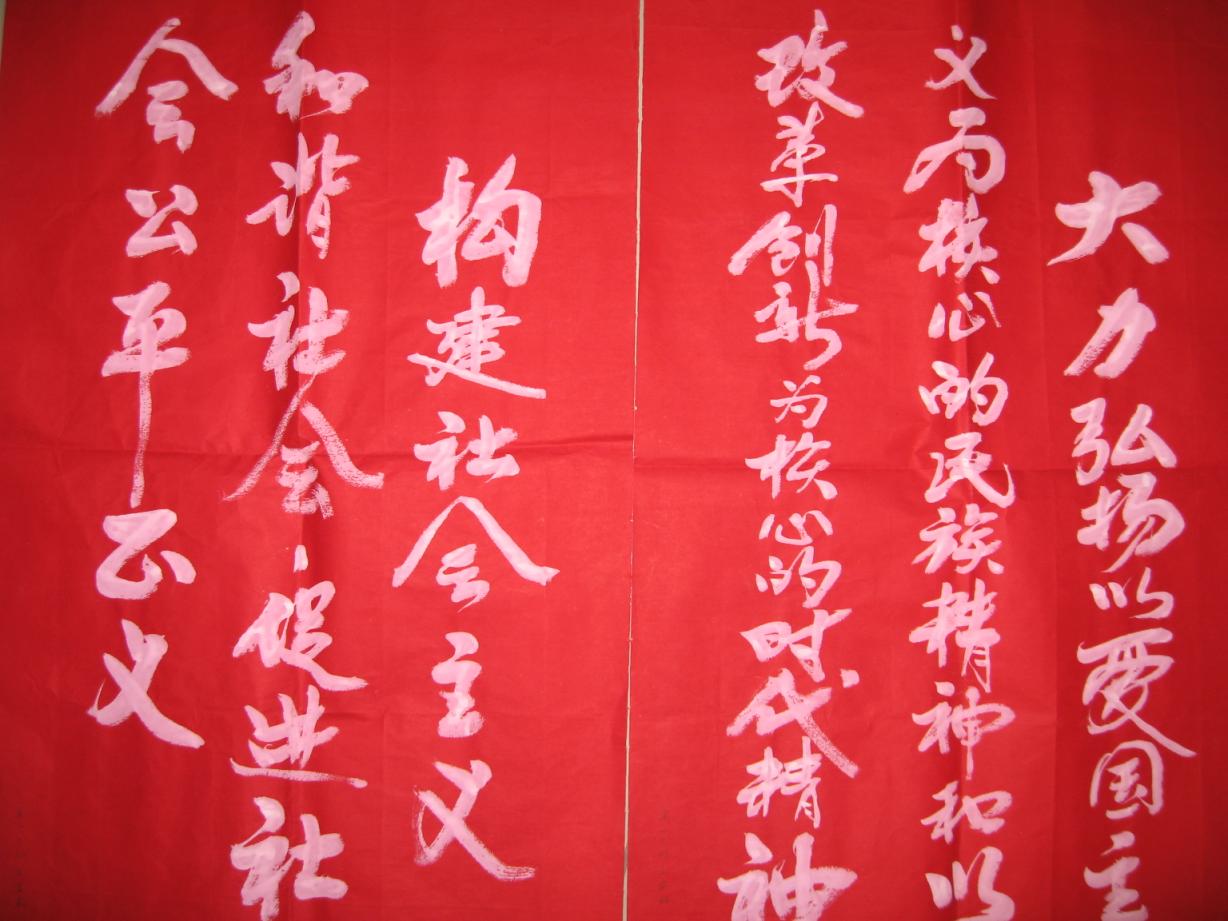 大力弘扬以爱国主
义为核心的民族精神和以
改革创新为核心的时代精神
构建社会主义
和谐社会、促进社
会公平正义